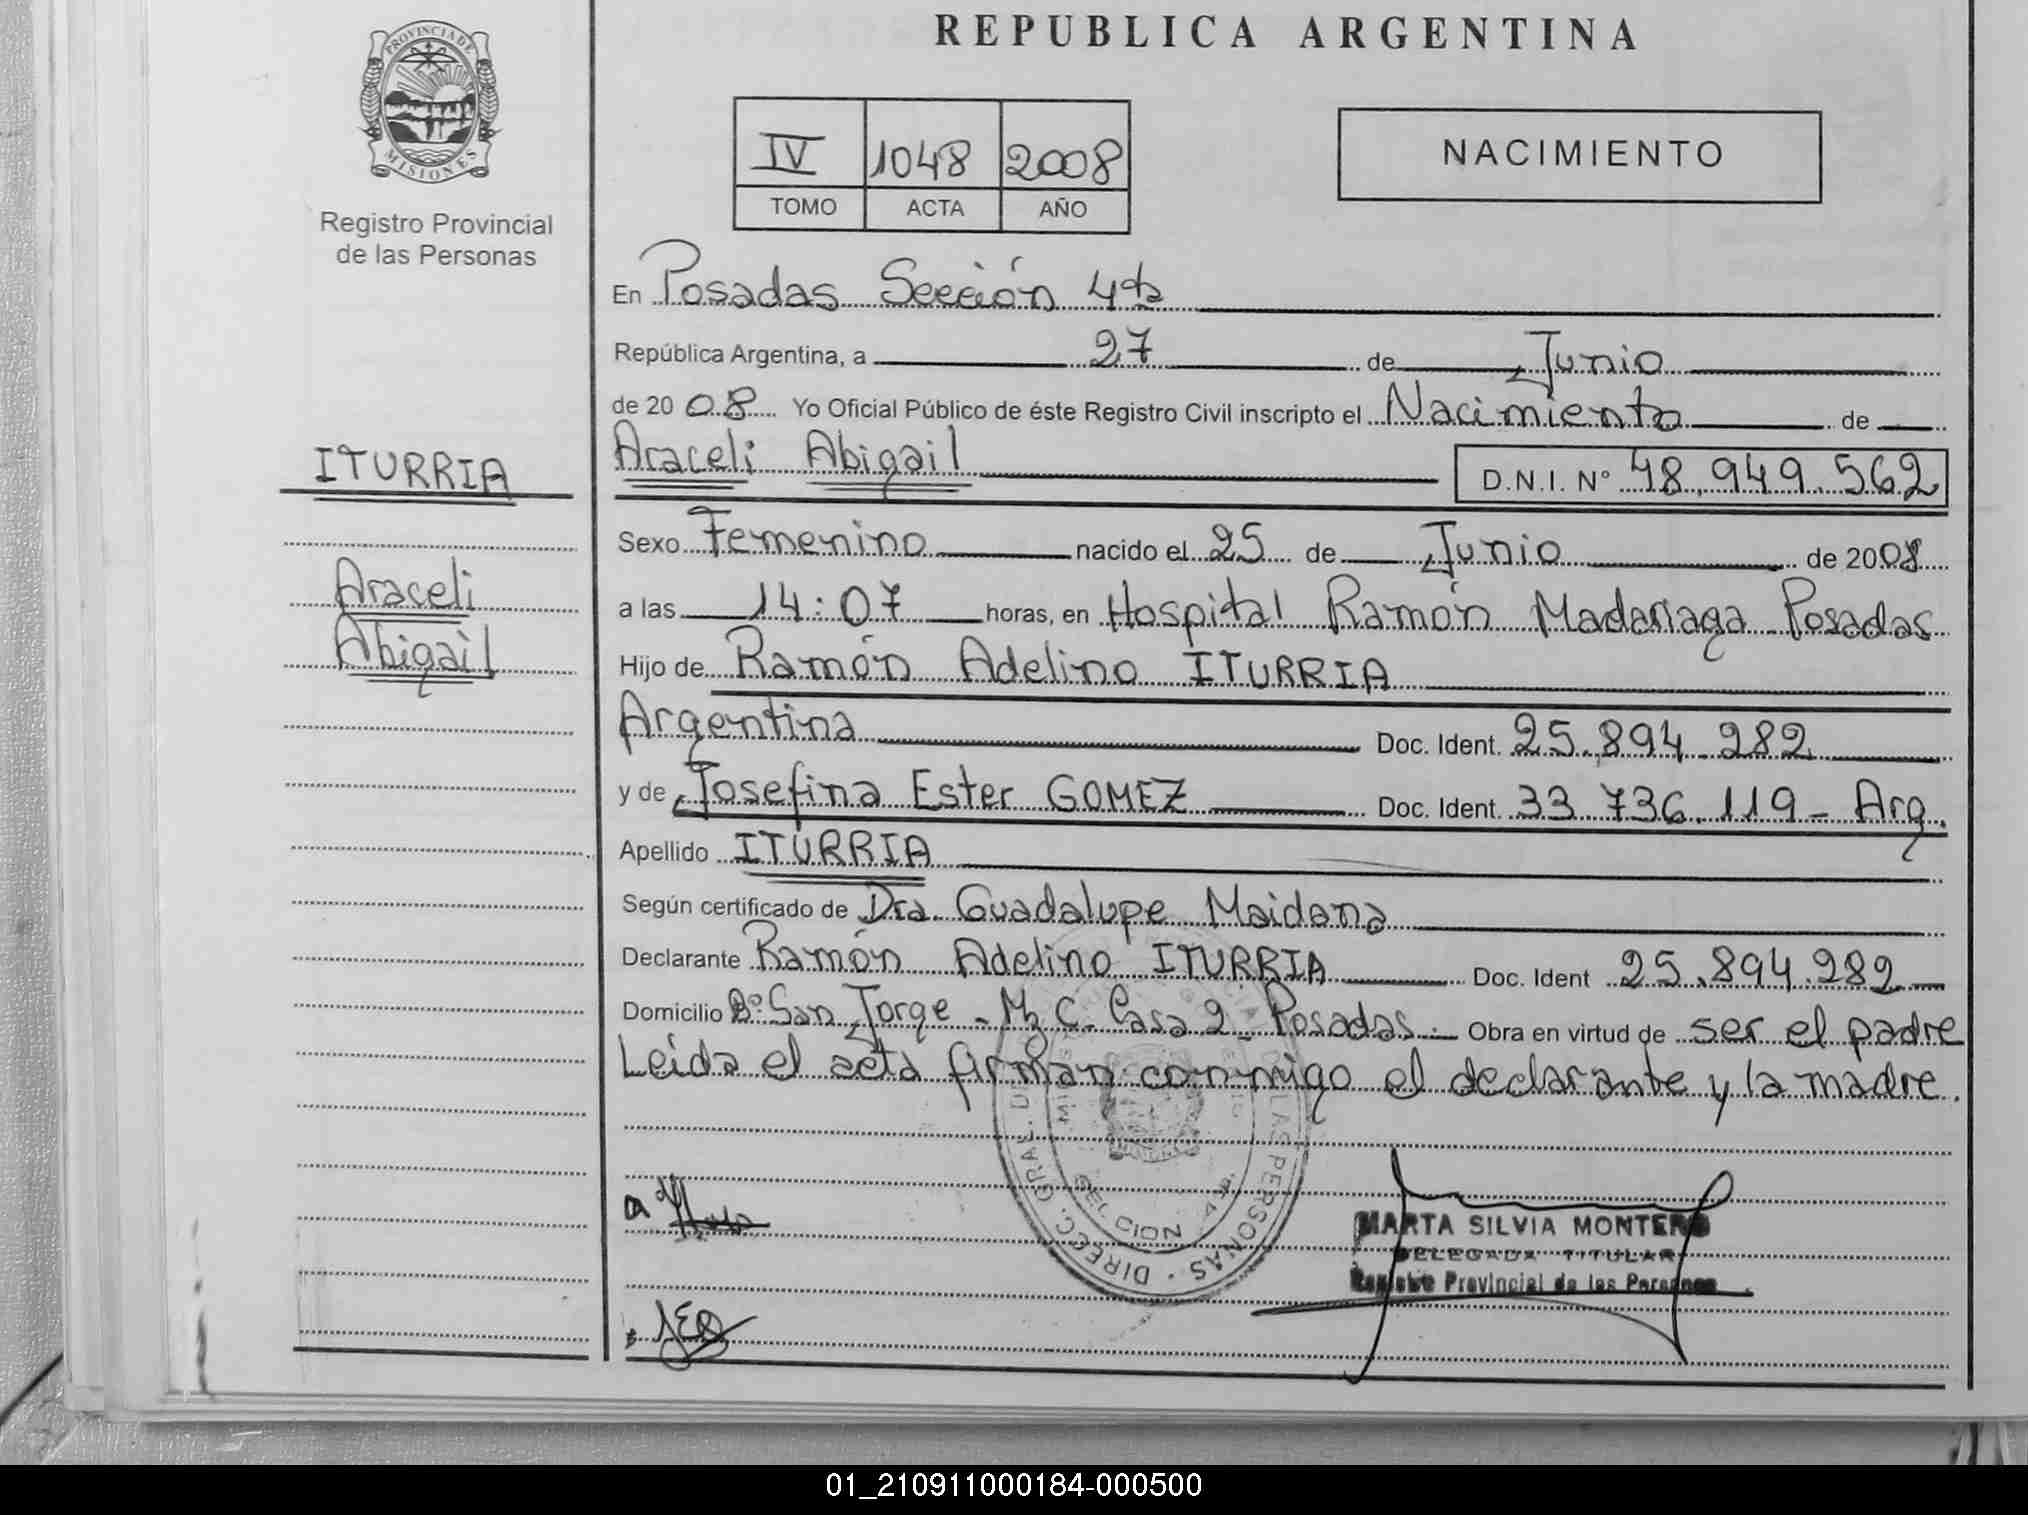 REPUBLICA ARGENTINA
PROVINCIA DE
MISIONES
Registro Provincial
de las Personas
IV 1048 2008
TOMO ACTA AÑO
NACIMIENTO
En Posadas Sección 4ta
República Argentina, a 27 de Junio
de 2008 Yo Oficial Público de éste Registro Civil inscripto el Nacimiento de
ITURRIA
Araceli Abigail D.N.I. Nº 48.949.562
Sexo Femenino nacido el 25 de Junio de 2008
Araceli
Abigail
a las 14:07 horas, en Hospital Ramón Madariaga Posadas
Hijo de Ramón Adelino ITURRIA
Argentina Doc. Ident. 25.894.282
y de Josefina Ester GOMEZ Doc. Ident. 33.736.119 - Arg.
Apellido ITURRIA
Según certificado de Dra. Guadalupe Maidana
Declarante Ramón Adelino ITURRIA Doc. Ident 25.894.282
Domicilio Bº San Jorge - Mz C - Casa 2 - Posadas. Obra en virtud de ser el padre
Leida el acta firman conmigo el declarante y la madre.
DIRECC. GRAL. PERSONAS
MARTA SILVIA MONTERO
DELEGADA TITULAR
Registro Provincial de las Personas
01_210911000184-000500